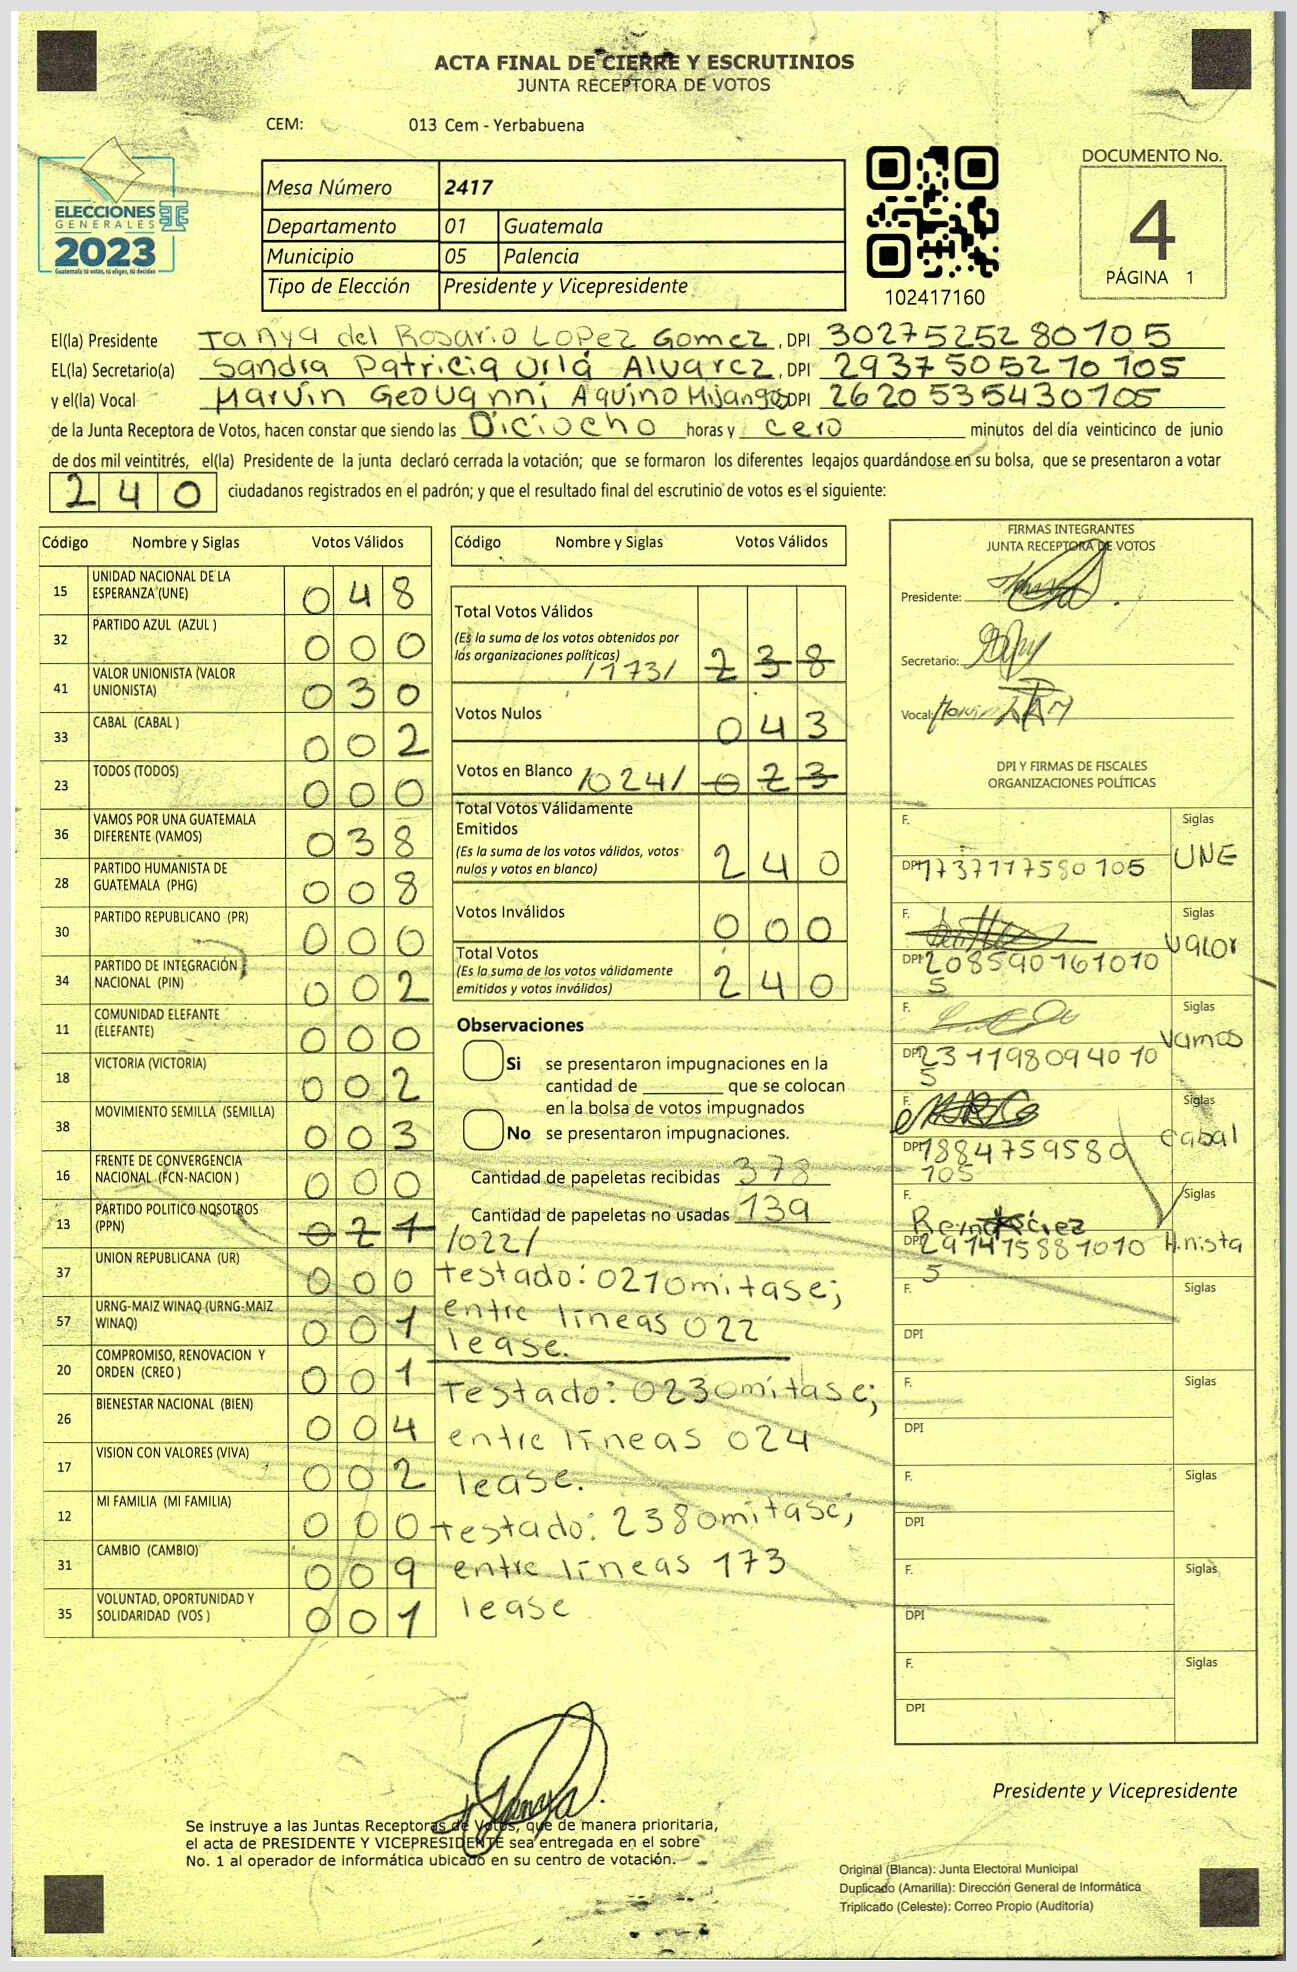 ACTA FINAL DE CIERRE Y ESCRUTINIOS
JUNTA RECEPTORA DE VOTOS
CEM: 013 Cem - Yerbabuena
ELECCIONES
GENERALES
2023
Guatemala tú votas, tú eliges, tú decides
Mesa Número 2417
Departamento 01 Guatemala
Municipio 05 Palencia
Tipo de Elección Presidente y Vicepresidente
102417160
DOCUMENTO No.
4
PÁGINA 1
El(la) Presidente Tanya del Rosario Lopez Gomez, DPI 3027525280105
EL(la) Secretario(a) Sandra Patricia Urla Alvarez, DPI 2937505270105
y el(la) Vocal Marvin Geovanni Aquino Mijangos DPI 2620535430105
de la Junta Receptora de Votos, hacen constar que siendo las Diciocho horas y cero minutos del día veinticinco de junio
de dos mil veintitrés, el(la) Presidente de la junta declaró cerrada la votación; que se formaron los diferentes legajos guardándose en su bolsa, que se presentaron a votar
240 ciudadanos registrados en el padrón; y que el resultado final del escrutinio de votos es el siguiente:
Código Nombre y Siglas Votos Válidos
15 UNIDAD NACIONAL DE LA ESPERANZA (UNE) 048
32 PARTIDO AZUL (AZUL ) 000
41 VALOR UNIONISTA (VALOR UNIONISTA) 030
33 CABAL (CABAL ) 002
23 TODOS (TODOS) 000
36 VAMOS POR UNA GUATEMALA DIFERENTE (VAMOS) 038
28 PARTIDO HUMANISTA DE GUATEMALA (PHG) 008
30 PARTIDO REPUBLICANO (PR) 000
34 PARTIDO DE INTEGRACIÓN NACIONAL (PIN) 002
11 COMUNIDAD ELEFANTE (ELEFANTE) 000
18 VICTORIA (VICTORIA) 002
38 MOVIMIENTO SEMILLA (SEMILLA) 003
16 FRENTE DE CONVERGENCIA NACIONAL (FCN-NACION ) 000
13 PARTIDO POLITICO NOSOTROS (PPN) 021 /022/
37 UNION REPUBLICANA (UR) 000
57 URNG-MAIZ WINAQ (URNG-MAIZ WINAQ) 001
20 COMPROMISO, RENOVACION Y ORDEN (CREO ) 001
26 BIENESTAR NACIONAL (BIEN) 004
17 VISION CON VALORES (VIVA) 002
12 MI FAMILIA (MI FAMILIA) 000
31 CAMBIO (CAMBIO) 009
35 VOLUNTAD, OPORTUNIDAD Y SOLIDARIDAD (VOS ) 001
Código Nombre y Siglas Votos Válidos
Total Votos Válidos
(Es la suma de los votos obtenidos por
las organizaciones políticas) /173/ 238
Votos Nulos 043
Votos en Blanco /024/ 023
Total Votos Válidamente
Emitidos
(Es la suma de los votos válidos, votos
nulos y votos en blanco) 240
Votos Inválidos 000
Total Votos
(Es la suma de los votos válidamente
emitidos y votos inválidos) 240
Observaciones
Si se presentaron impugnaciones en la
cantidad de ________ que se colocan
en la bolsa de votos impugnados
No se presentaron impugnaciones.
Cantidad de papeletas recibidas 378
Cantidad de papeletas no usadas 139
testado: 021omitase;
entre líneas 022
lease.
Testado: 023omitase;
entre líneas 024
lease.
testado: 238omitase;
entre líneas 173
lease
FIRMAS INTEGRANTES
JUNTA RECEPTORA DE VOTOS
Presidente:
Secretario:
Vocal:
DPI Y FIRMAS DE FISCALES
ORGANIZACIONES POLÍTICAS
F. Siglas
DPI 1737117580105 UNE
F. Siglas
DPI 2085907610105 Valor
F. Siglas
DPI 2311980940105 Vamos
F. Siglas
DPI 1884759580105 Cabal
F. Siglas
DPI 2914758810105 H.nista
F. Siglas
DPI
F. Siglas
DPI
F. Siglas
DPI
F. Siglas
DPI
F. Siglas
DPI
Presidente y Vicepresidente
Se instruye a las Juntas Receptoras de Votos, que de manera prioritaria,
el acta de PRESIDENTE Y VICEPRESIDENTE sea entregada en el sobre
No. 1 al operador de informática ubicado en su centro de votación.
Original (Blanca): Junta Electoral Municipal
Duplicado (Amarilla): Dirección General de Informática
Triplicado (Celeste): Correo Propio (Auditoría)